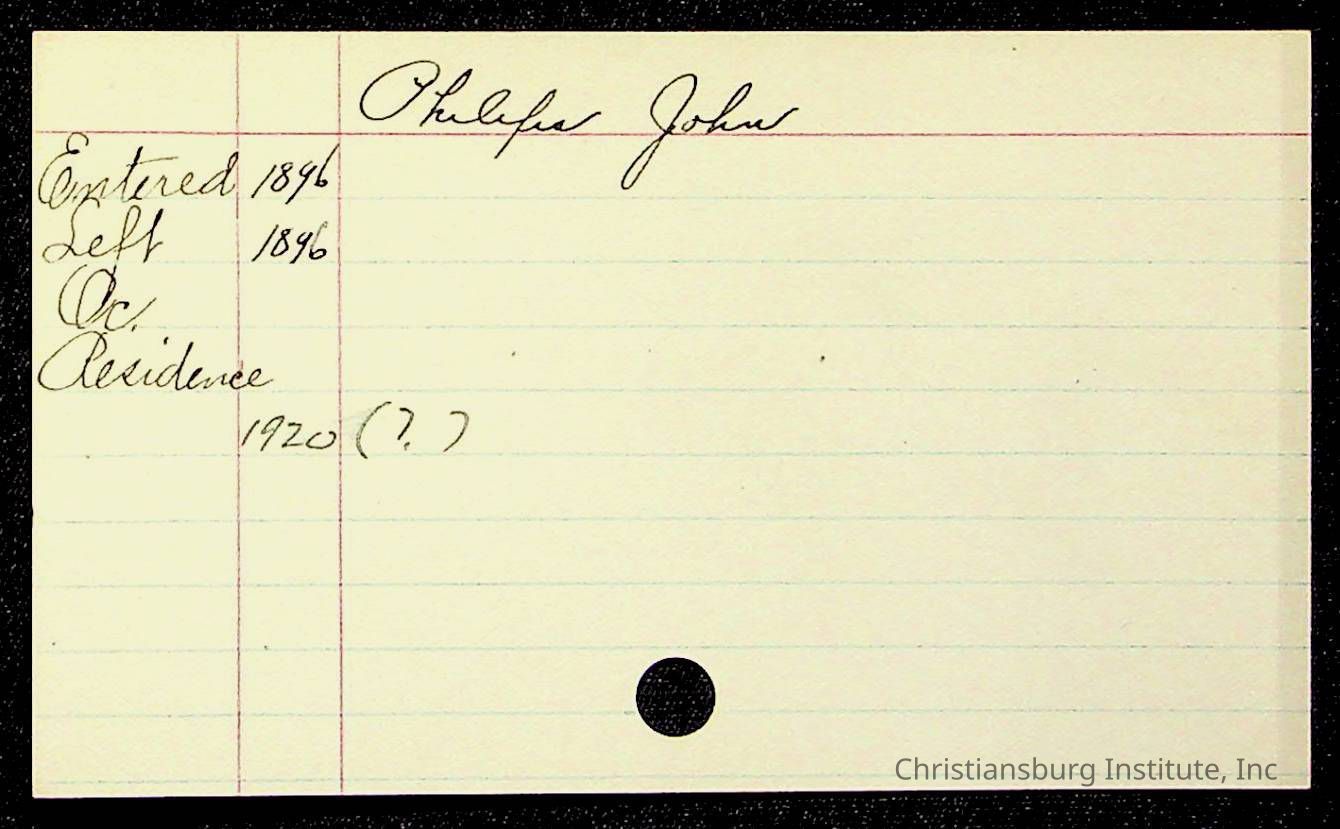 Philips John
Entered 1896
Left 1896
Oc.
Residence
1920 (?)
Christiansburg Institute, Inc